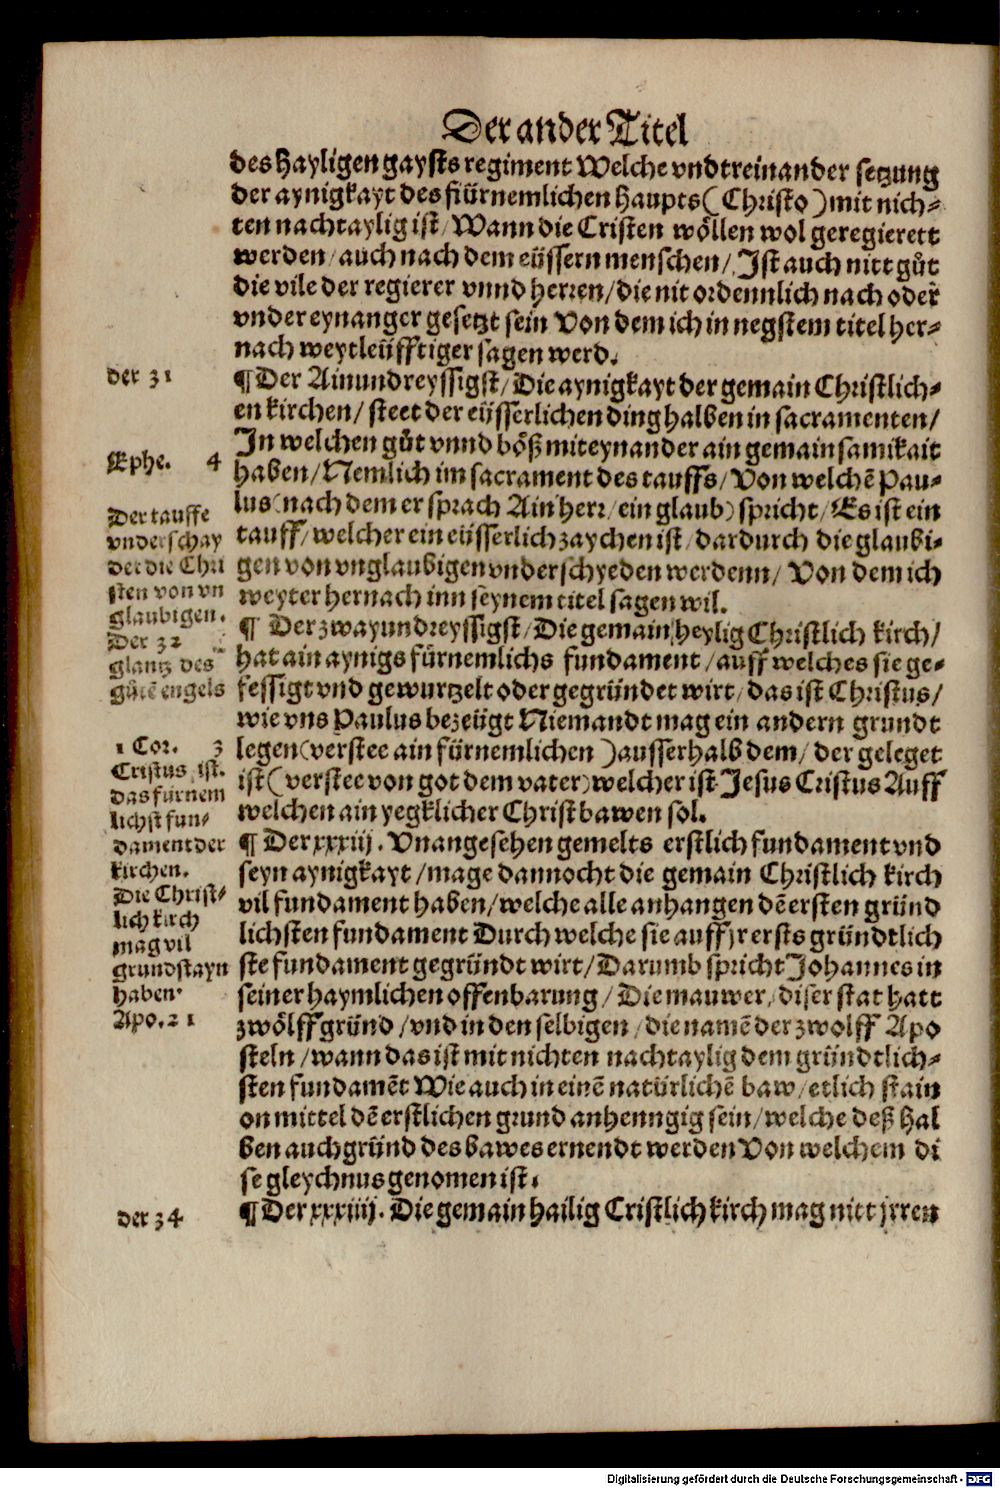 Der ander Titel
des Hayligen gaysts regiment Welche vndtreinander setzung
der aynigkayt des fürnemlichen Haupts (Christo) mit nich⸗
ten nachtaylig ist / Wann die Cristen wöllen wol geregierett
werden / auch nach dem eüssern menschen / Ist auch nitt gůt
die vile der regierer vnnd herren / die nit ordennlich nach oder
vnder eynanger gesetzt sein Von dem ich in negstem titel her⸗
nach weytleüfftiger sagen werd.
der 31
¶ Der Ainundreyssigst / Die aynigkayt der gemain Christlich⸗
en kirchen / steet der eüsserlichen ding halben in sacramenten /
In welchen gůt vnnd böß miteynander ain gemainsamikait
Ephe. 4
haben / Nemlich im sacrament des tauffs / Von welchē Pau⸗
lus (nach dem er sprach Ain herr / ein glaub) spricht / Es ist ein
tauff / welcher ein eüsserlich zaychen ist / dardurch die glaubi⸗
gen von vnglaubigen vnderschyeden werdenn / Von dem ich
weyter hernach inn seynem titel sagen wil.
Der tauffe
vnderschay
det die Chri
sten von vn
glaubigen.
Der 32
glantz des
gůtē engels
¶ Der zwayundreyssigst / Die gemain heylig Christlich kirch /
hat ain aynigs fürnemlichs fundament / auff welches sie ge⸗
fessigt vnd gewurtzelt oder gegründet wirt / das ist Christus /
wie vns Paulus bezeügt Niemandt mag ein andern grundt
legen (verstee ain fürnemlichen) ausserhalb dem / der geleget
ist (verstee von got dem vater) welcher ist Jesus Cristus Auff
welchen ain yegklicher Christ bawen sol.
1 Cor. 3
Cristus ist.
das fürnem
lichst fun⸗
dament der
kirchen.
Die Christ⸗
lich kirch
mag vil
grundstayn
haben.
Apo. 21
¶ Der xxxiij. Vnangesehen gemelts erstlich fundament vnd
seyn aynigkayt / mage dannocht die gemain Christlich kirch
vil fundament haben / welche alle anhangen dē ersten gründ
lichsten fundament Durch welche sie auff jr ersts gründtlich
ste fundament gegründt wirt / Darumb spricht Johannes in
seiner haymlichen offenbarung / Die mauwer / diser stat hatt
zwölff gründ / vnd in den selbigen / die namē der zwolff Apo
steln / wann das ist mit nichten nachtaylig dem gründtlich⸗
sten fundamēt Wie auch in einē natürlichē baw / etlich stain
on mittel dē erstlichen grund anhenngig sein / welche deß hal
ben auch gründ des bawes ernendt werden Von welchem di
se gleychnus genomen ist.
der 34
¶ Der xxxiiij. Die gemain hailig Cristlich kirch mag nitt jrren
Digitalisierung gefördert durch die Deutsche Forschungsgemeinschaft - DFG